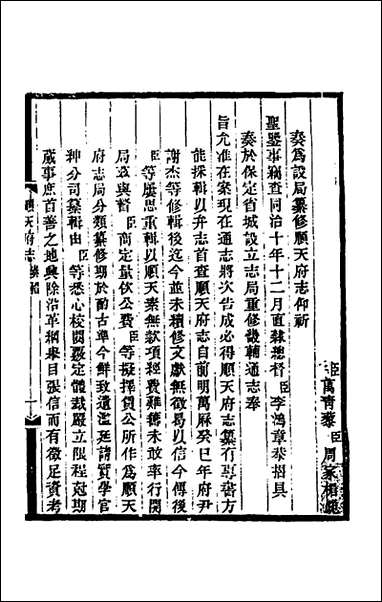 臣萬青藜臣周家楣跪
奏爲設局纂修順天府志仰祈
聖鑒事竊查同治十年十二月直隸總督臣李鴻章恭摺具
奏於保定省城設立志局重修畿輔通志奉
旨允准在案現在通志將次告成必得順天府志纂有專書方
能採輯以弁志首查順天府志自前明萬厯癸巳年府尹
謝杰等修輯後迄今並未續修文獻無徵曷以信今傳後
臣等屢思重輯以順天素無款項經費難籌未敢率行開
局茲與督臣商定量攸公費臣等擬擇賃公所作爲順天
府志局分類纂修期於酌古準今鮮致遺濫延請賢學官
紳分司纂輯由臣等悉心校閱釐定體裁嚴立限程尅期
蕆事庶首善之地興除沿革綱舉目張信而有徵足資考
順天府志
一